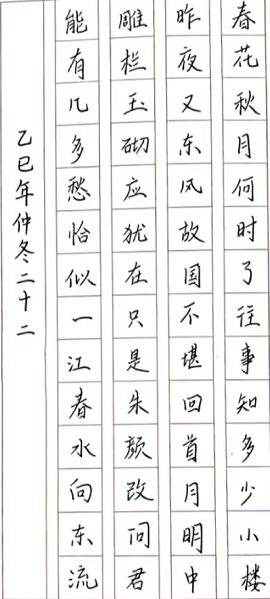 春花秋月何时了往事知多少小楼
昨夜又东风故国不堪回首月明中
雕栏玉砌应犹在只是朱颜改问君
能有几多愁恰似一江春水向东流
乙巳年仲冬二十二